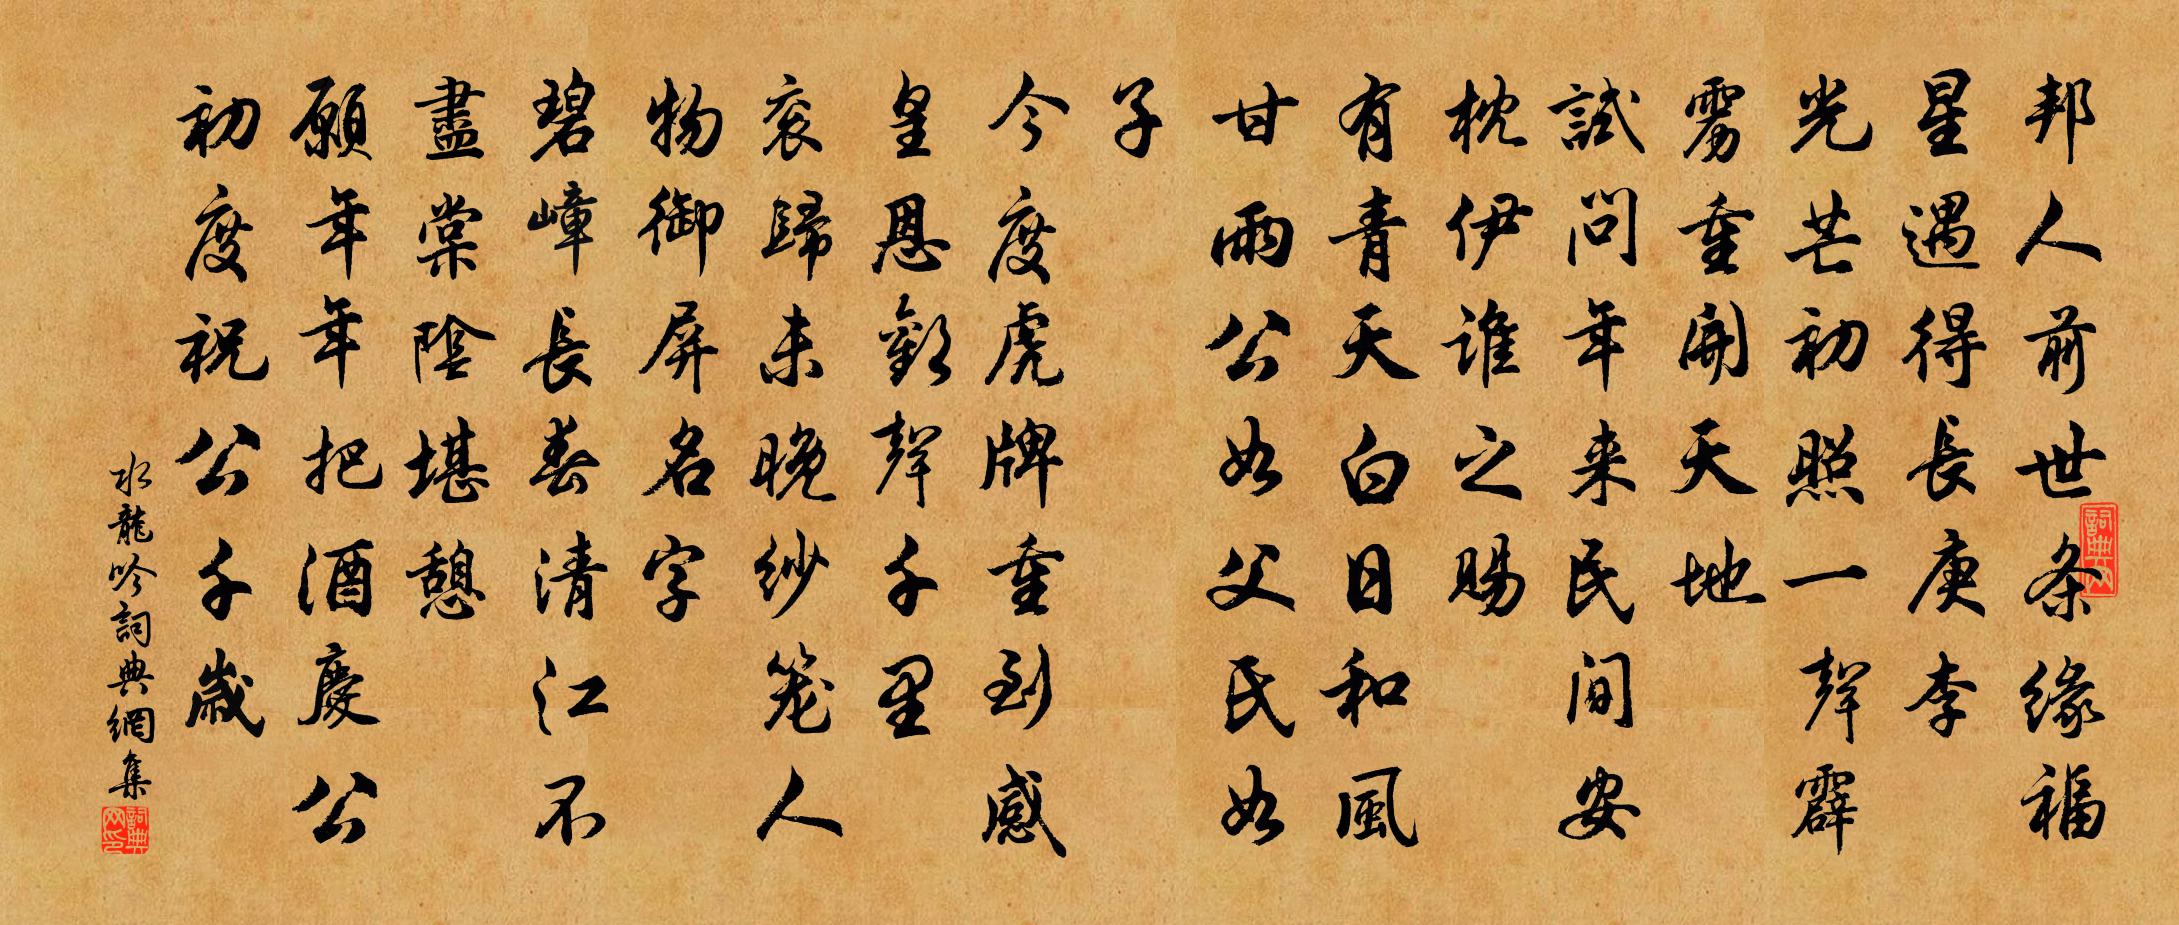 邦人前世条緣福
星遇得長庚李
光芒初照一聲霹
雳重開天地
試問年来民間安
枕伊誰之賜
有青天白日和風
甘雨公如父民如
子
今度虎牌重到感
皇恩歡聲千里
衮歸未晚紗笼人
物御屏名字
碧嶂長春清江不
盡棠陰堪憩
願年年把酒慶公
初度祝公千歲
水龍吟詞典網集
詞典网
詞典网印